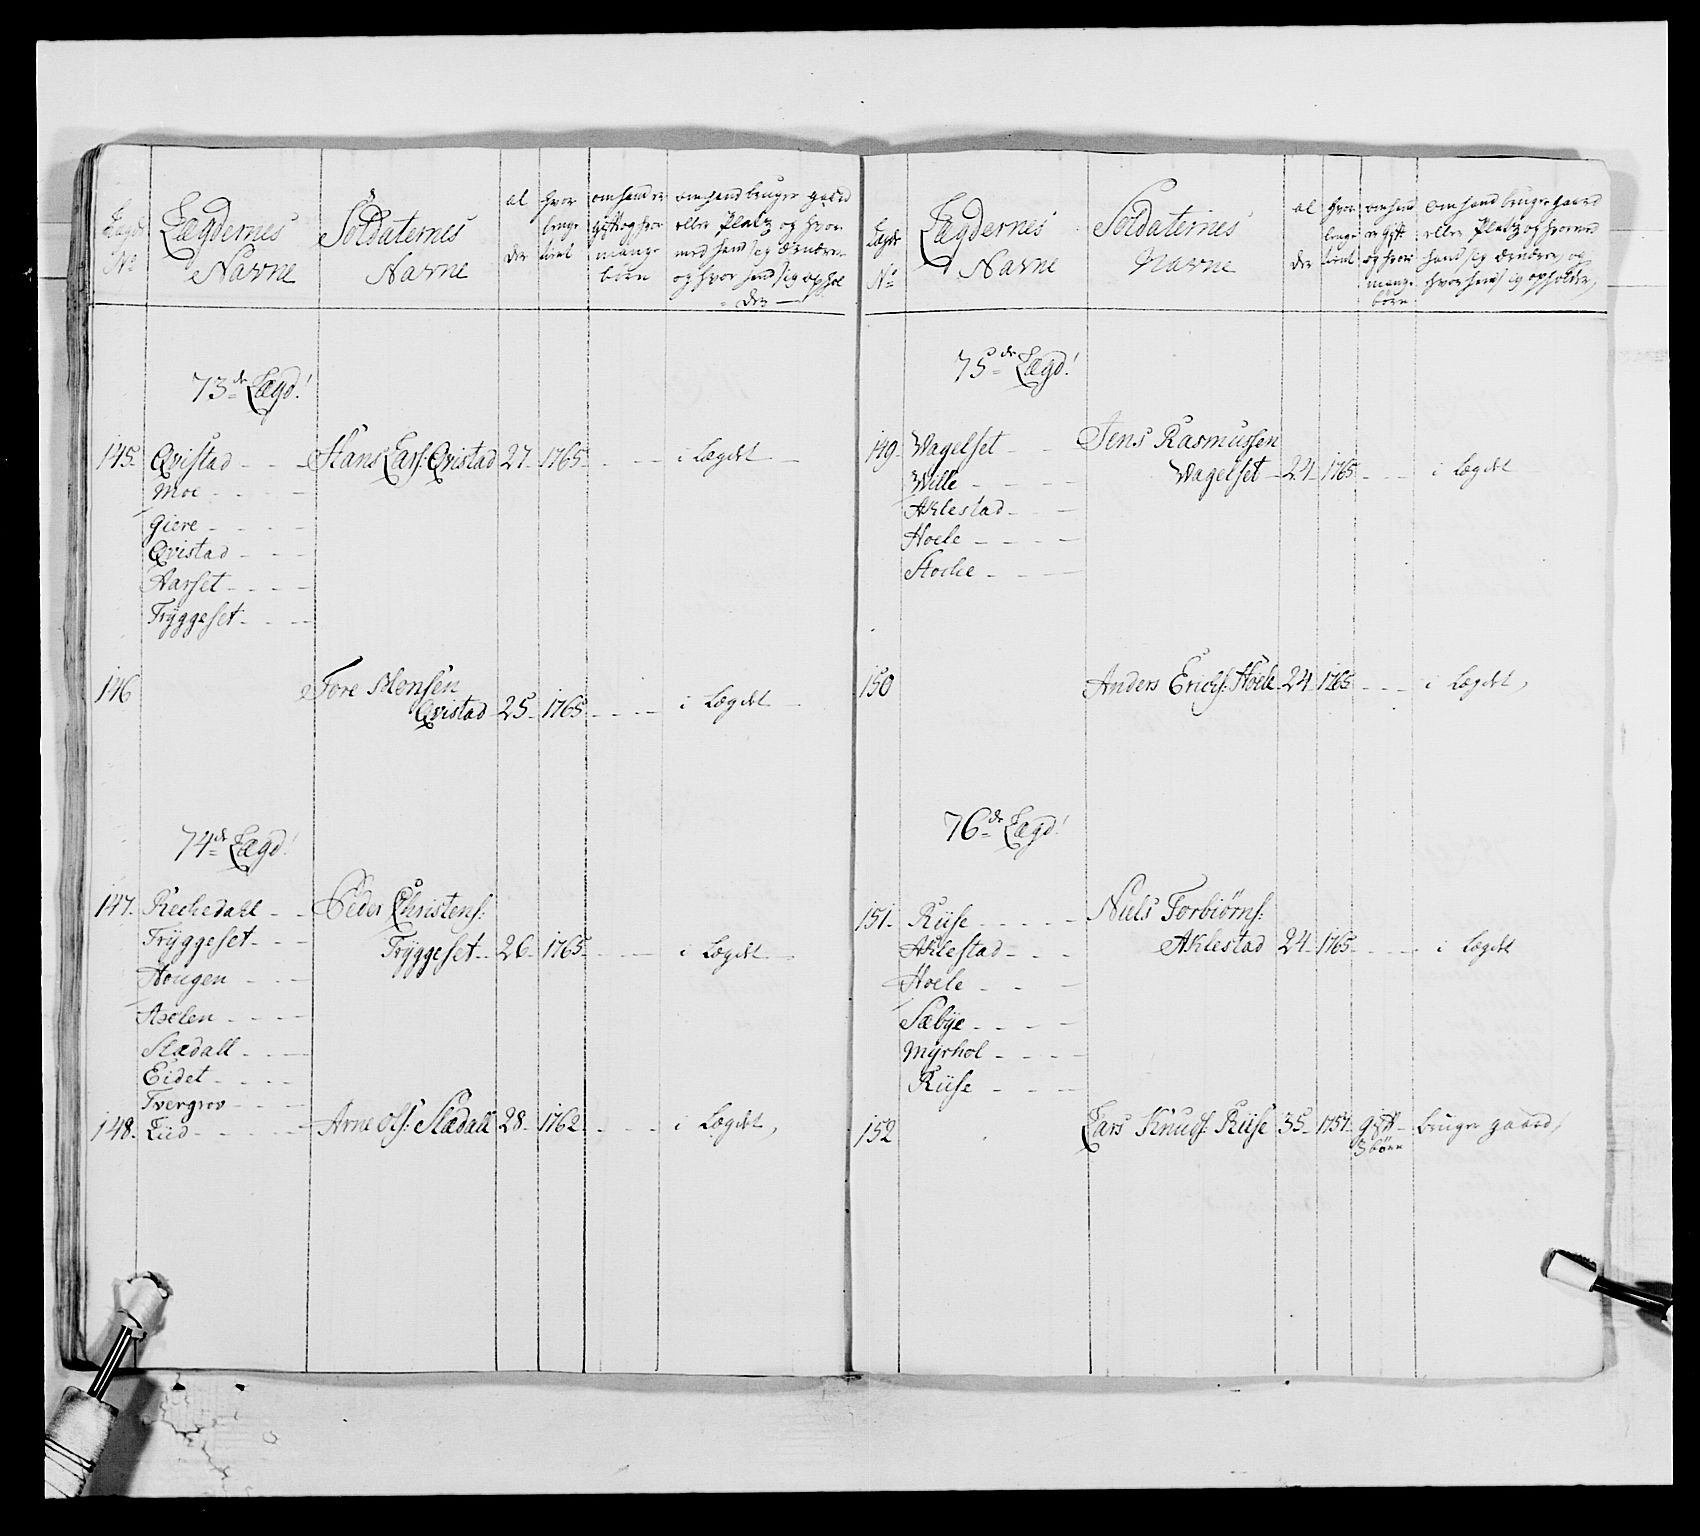 Lægds
No
Lægdernes
Navne
Soldaternes
Navne
al
der
hvor
lenge
tient
om hand er
gift og hvor
mange
børn
om hand bruger gaard
eller Platz og hvor
med hand sig
og hvor hand sig ophol
der
73de Lægd!
145. Qvistad Hans Lars: Qvistad 27 1765 i Lægdet
Moe
Giere
Qvistad
Aarset
Tryggeset
146 Tore Monsen
Qvistad 25 1765 i Lægdet
74de Lægd!
147. Rechedahl Peder Christens:
Tryggeset Tryggeset 26 1765 i Lægdet
Hougen
Axelen
Stædall
Eidet
Tvergrov
148. Liid Arne Ols: Stædall 28 1762 i Lægdet
Lægds
No
Lægdernes
Navne
Soldaternes
Navne
al
der
hvor
lenge
tient
om hand
er gift
og hvor
mange
børn
om hand bruger gaard
eller Platz og hvormed
hand sig og
hvor hand sig opholder
75de Lægd!
149 Wagelset Jens Rasmussen
Welle Wagelset 24 1765 i Lægdet
Aklestad
Hoele
Stocke
150 Anders Erichs: Hoele 24 1765 i Lægdet
76de Lægd!
151 Riise Niels Torbiørns:
Aklestad Aklestad 24 1765 i Lægdet
Hoele
Sæbye
Myrhol
Riise
152 Lars Knuds: Riise 35 1751 gift bruger gaard
3 børn